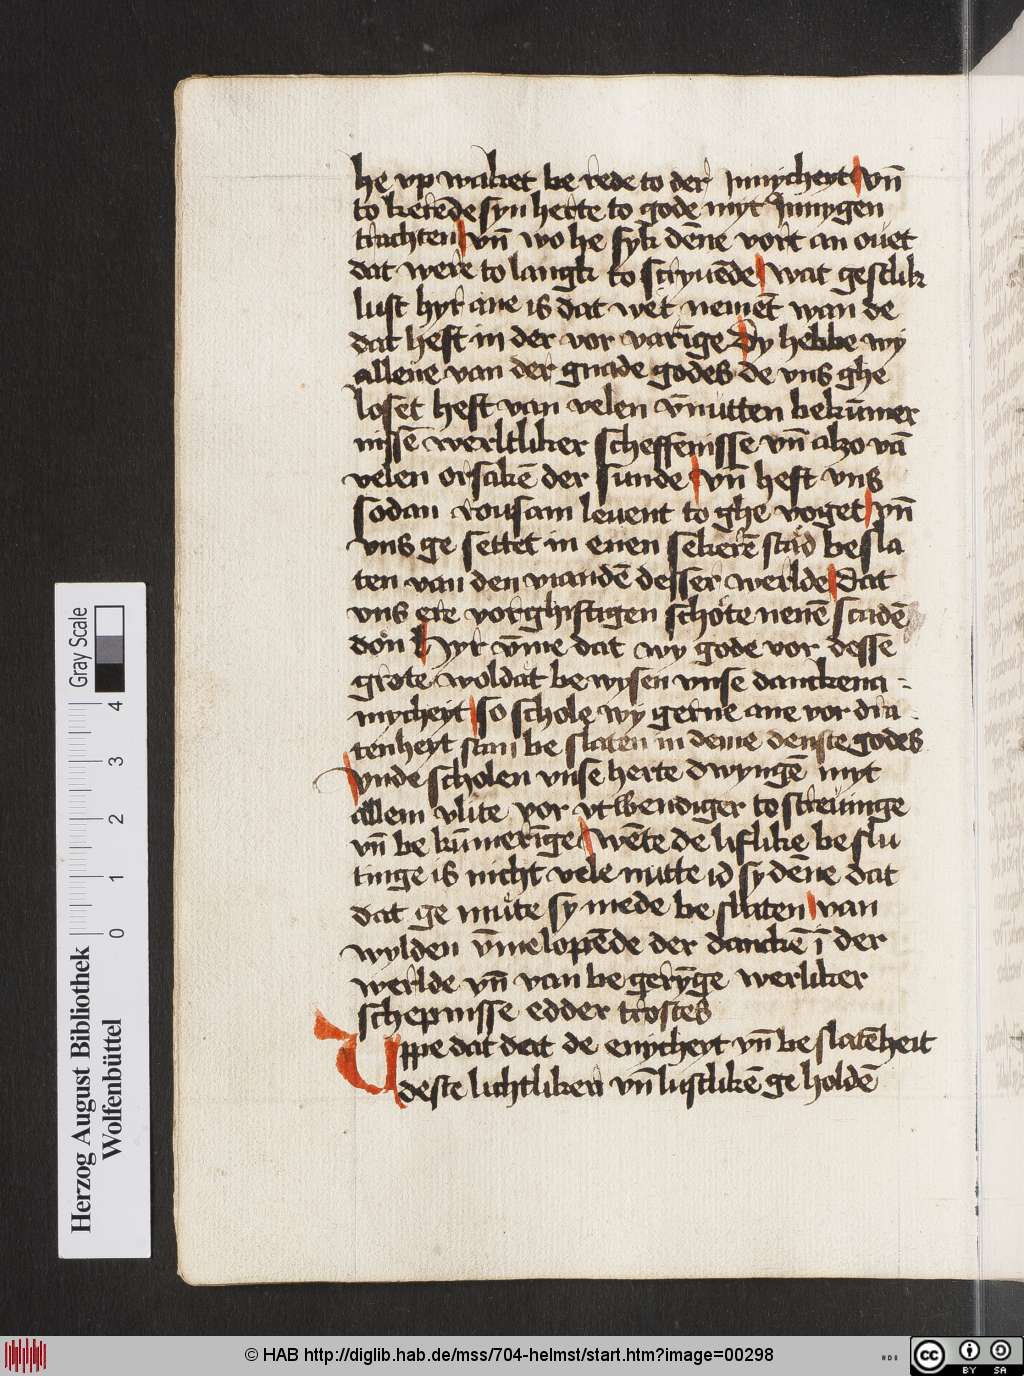 he vp waket be rede to der Jnnycheyt vn̄
to kerēde syn herte to gode myt Jnnygen
trachten vn̄ wo he syk dēne vort an ouet
dat were to langk to scryuēde wat gestlik
lust hyr ane is dat wet nemet wan de
dat heft in der vor varīge Dy hebbe wy
allene van der gnade godes de vns ghe
loset heft van velen v̄nutten bekūmer
nissē werltliker scheffenisse vn̄ alzo vā
velen orsakē der sunde vn̄ heft vns
sodan rousam leuent to ghe voget vn̄
vns ge settet in enen sekerē stad besla
ten van den viandē desser werlde Dat
vns ere vorghiftigen schote nenē scadē
don Hyr v̄me dat wy gode vor desse
grote woldat be wysen vnse danckena
mycheyt so schole wy gerne ane vor dra
tenheyt stan be slaten in deme denste godes
vnde scholen vnse herte dwyngē myt
allem vlite vor vtwendiger to streuinge
vn̄ be kūmerīge wēte de liflike be slu
tinge is nicht vele nutte id sy dēne dat
dat ge mute sy mede be slaten van
wylden v̄melopēde der danckē ī der
werlde vn̄ van be gerȳge werliker
schepnisse edder trostes
Uppe dat dat de enycheyt vn̄ be slatēheit
deste lichtliken vn̄ lustlikē ge holdē
Herzog August Bibliothek
Wolfenbüttel
0 1 2 3 4
Gray Scale
© HAB http://diglib.hab.de/mss/704-helmst/start.htm?image=00298
cc BY SA